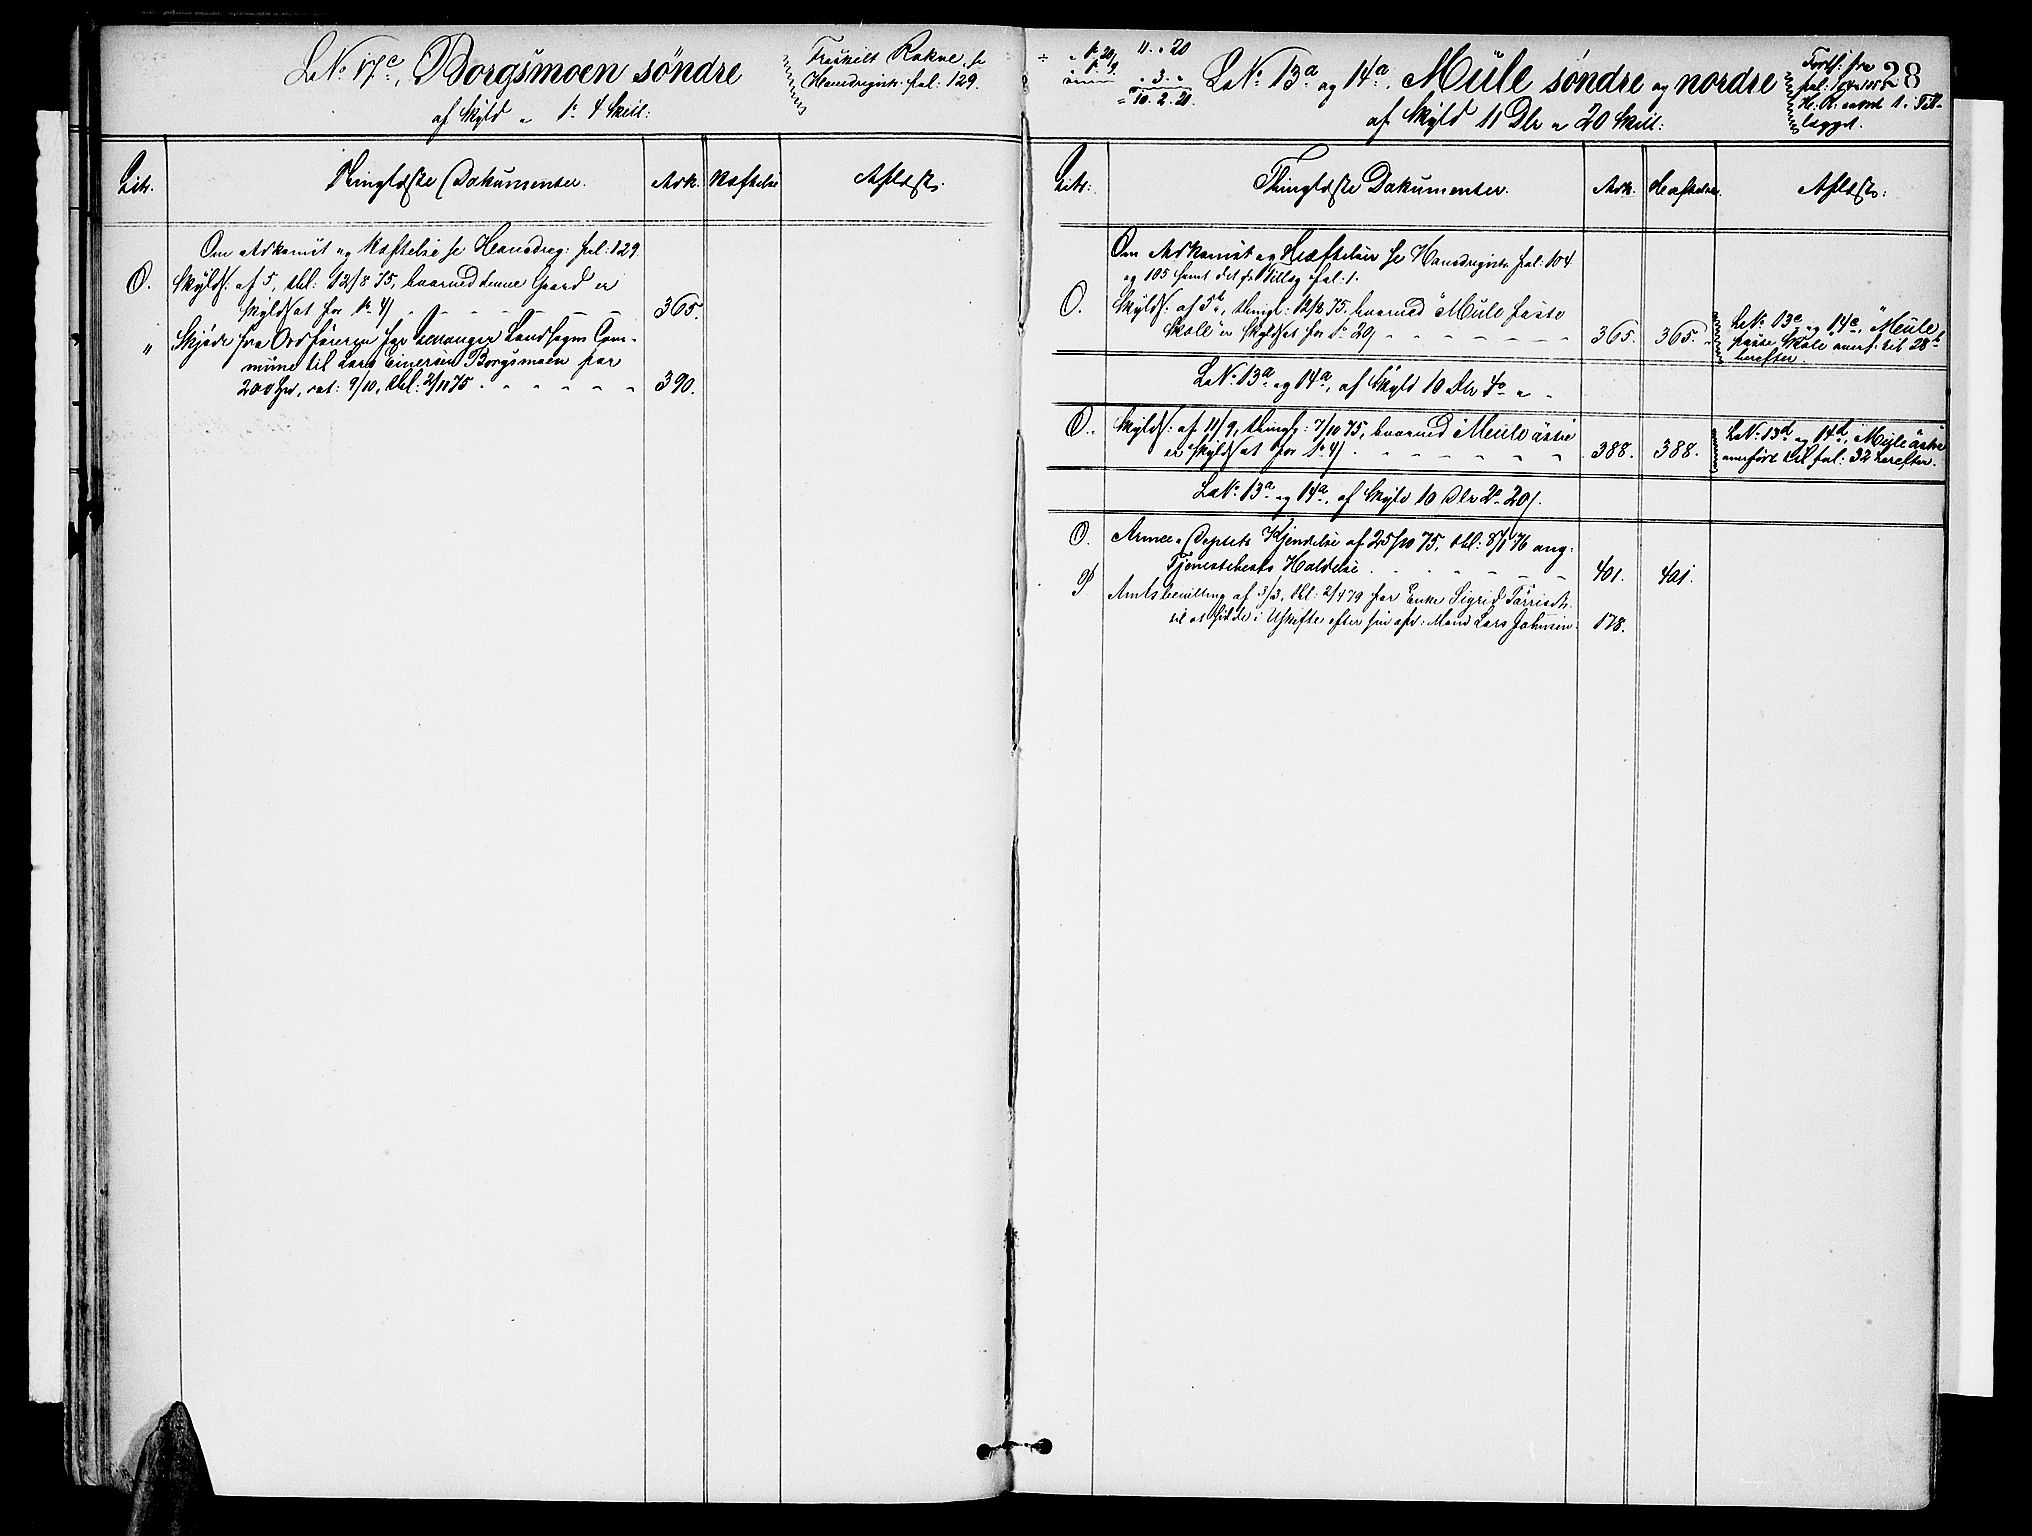 LNo 17c, Borgsmoen søndre
af Skyld „ 1 4 Skill:
Fraskilt Rokne, se
Hovedregistr. fol. 129.
Litr.
Thinglæste Dokumenter.
Adk.
Hæftelse
Aflæst:
Om Adkomst og Hæftelse se Hovedreg: fol: 129
O.
Skylds: af 5, thl: 12/8 75, hvorved denne Gaard er
skyldsat for 1 4/
365.
„
Skjøde fra Ordføreren for Levanger Landsogns Com-
mune til Lars Einersen Borgsmoen for
200 Spd, dat: 9/10, thl: 2/11 75
390.
÷
11. „ 20
„ 3. „
= 10. 2. 21.
28
LNo 13a og 14a, Müle søndre og nordre
af Skyld 11 Dlr „ 20 Skill:
Forts: fra
fol: 104 105
H: R: samt 1. Till-
lægget.
Litr:
Thinglæste Dokumenter.
Adk.
Hæftelser.
Aflæst:
Om Adkomst og Hæftelser se Hovedregistr. fol: 104
og 105 samt det første Tillæg fol: 1.
O.
Skylds: af 5, thingl: 12/8 75, hvorved "Mule faste
Skole" er skyldsat for 1 20/
365.
365.
LNo 13c og 14c, "Müle
faste Skole" overf. til 28b
herefter.
LNo 13a og 14a, af Skyld 10 Dlr 4 „
O.
Skylds: af 11/9, thingl: 7/10 75, hvorved "Müle østre"
er skyldsat for 1 4/
388.
388.
LNo 13d og 14d, Müle østre
overført til fol: 32 herefter.
LNo 13a og 14a, af Skyld 10 Dlr 2 20/.
O.
Armee-Deptets Kjendelse af 25/10 75, thl: 8/1 76 ang:
Tjenestehests Holdelse
401.
401.
P
Amtsbevilling af 3/3, thl: 2/4 79 for Enke Sigrid Tørrisdtr.
til at hidde i Uskifte efter sin afd: Mand Lars Johnsen
178.